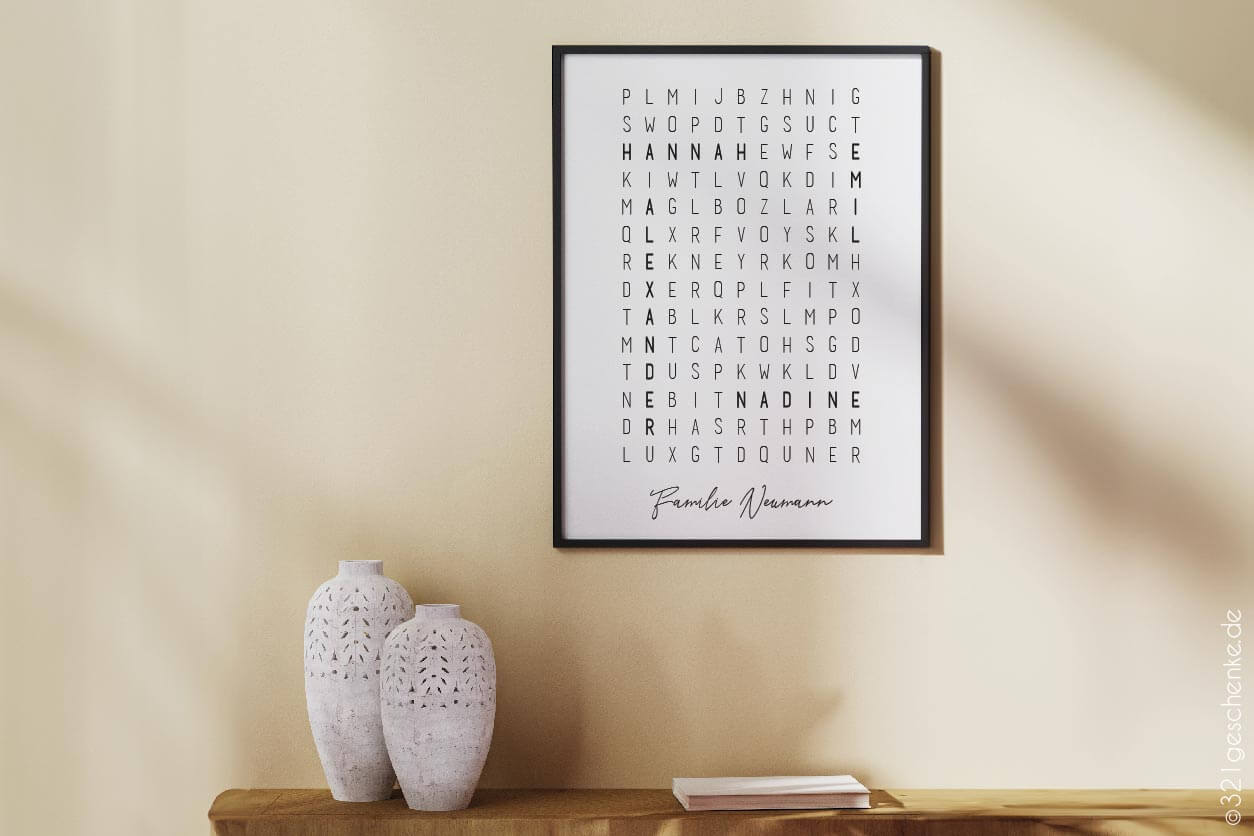 P L M I J B Z H N I G
S W O P D T G S U C T
H A N N A H E W F S E
K I W T L V Q K D I M
M A G L B O Z L A R I
Q L X R F V O Y S K L
R E K N E Y R K O M H
D X E R Q P L F I T X
T A B L K R S L M P O
M N T C A T O H S G D
T D U S P K W K L D V
N E B I T N A D I N E
D R H A S R T H P B M
L U X G T D Q U N E R
Familie Neumann
©321geschenke.de